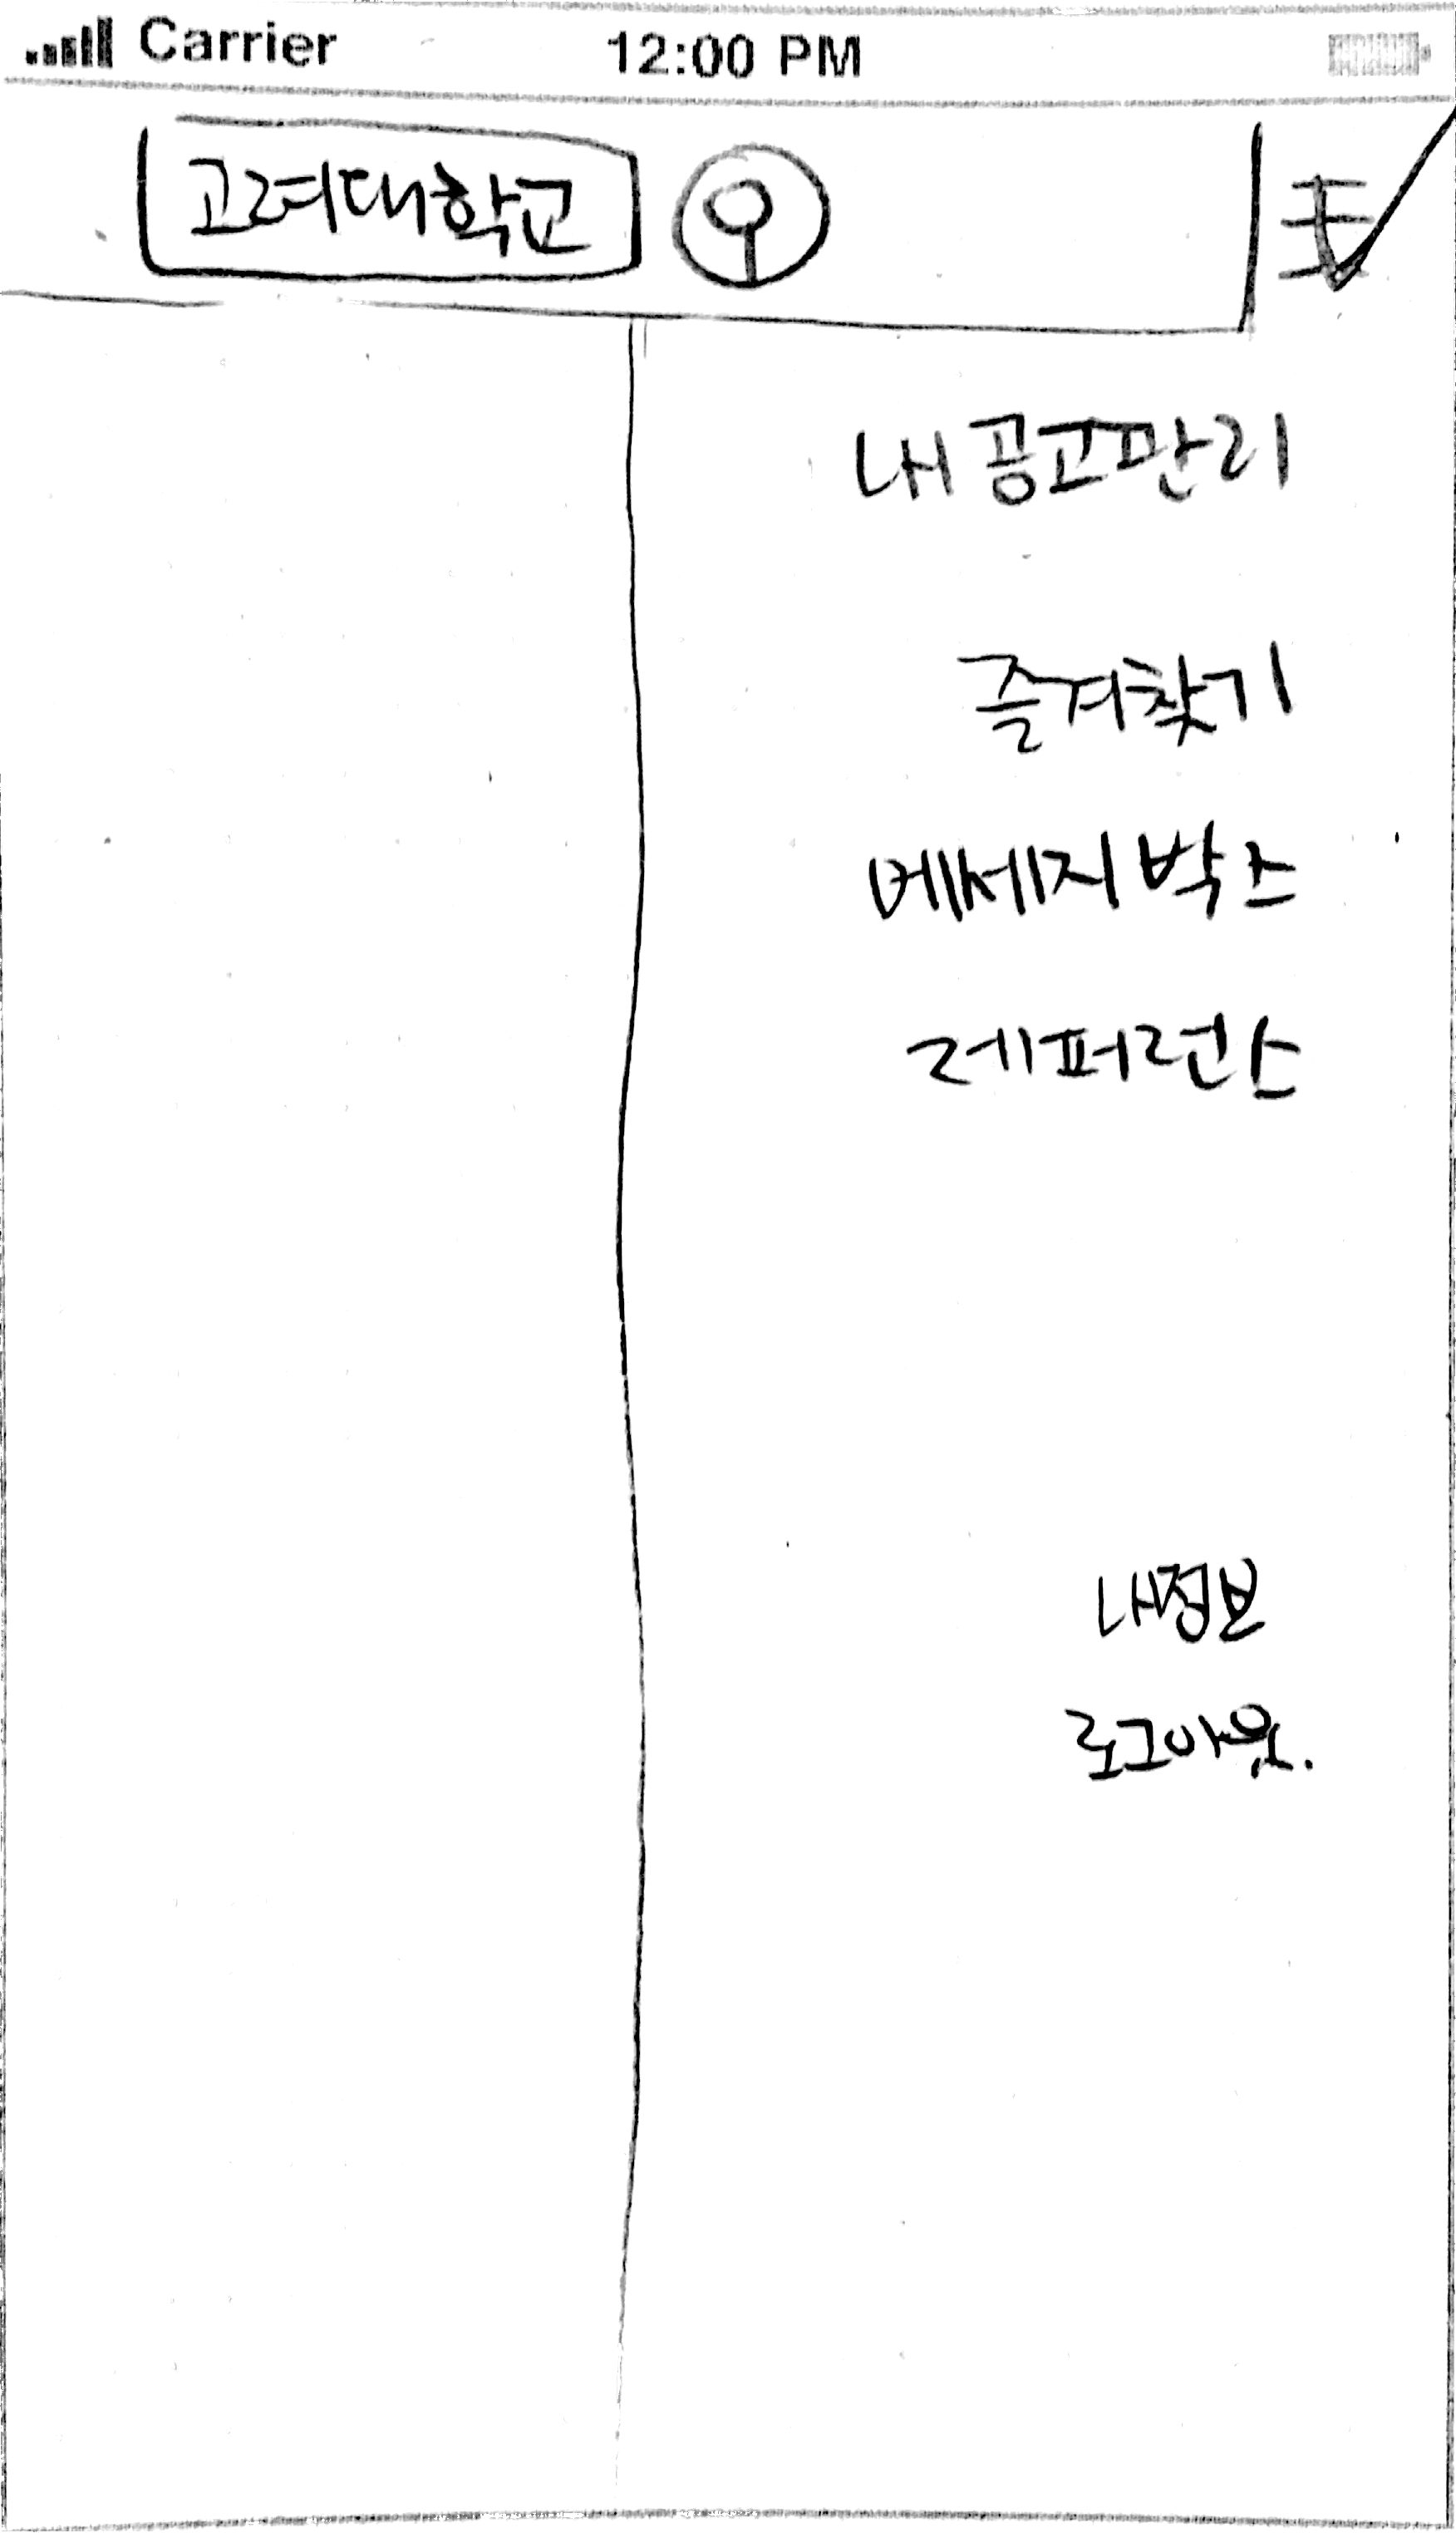 Carrier 12:00 PM
고려대학교
내 공고관리
즐겨찾기
메세지 박스
레퍼런스
내정보
로그아웃.